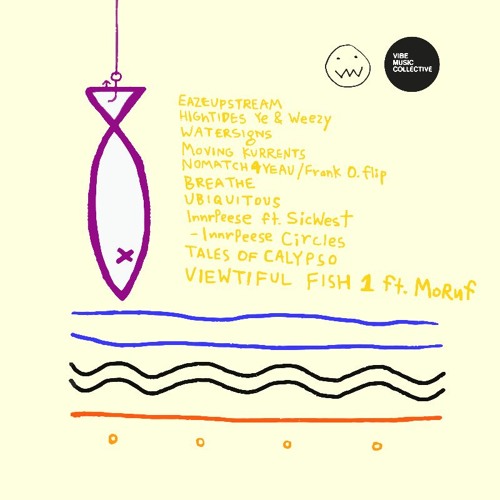 VIBE
MUSIC
COLLECTIVE
EAZEUPSTREAM
HIGHTIDES Ye & Weezy
WATERSIGNS
MOVING KURRENTS
NOMATCH4YEAU/Frank O. flip
BREATHE
UBIQUITOUS
InnrPeese ft. SicWest
- InnrPeese Circles
TALES OF CALYPSO
VIEWTIFUL FISH 1 ft. MoRuf